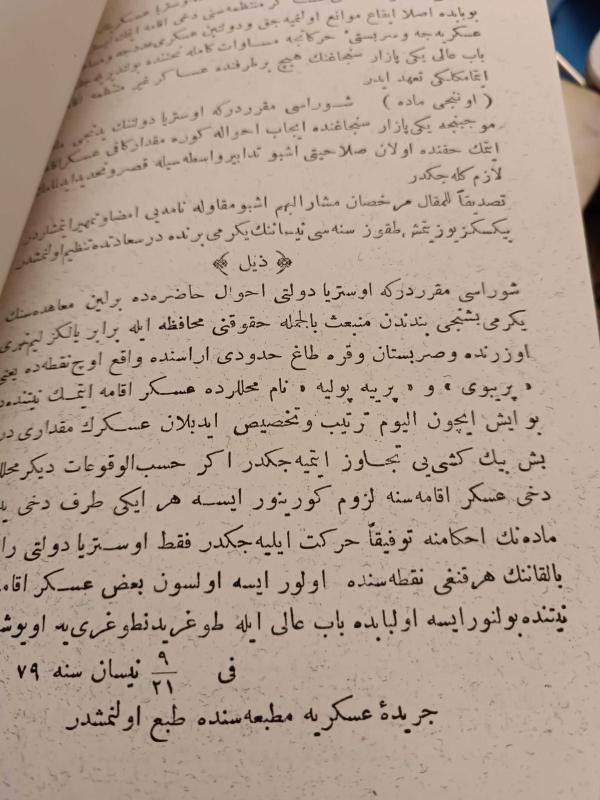 بوبابده اصلا ایقاع موانع اولنمیه جق ودولتین عسکری
عسکریه جه وسربستئ حرکاتجه مساوات کامله تحتنده بولنه
باب عالی یکی پازار سنجاغنك هیچ بر طرفنده عساکر غیر منتظمه
ایتمامکلکی تعهد ایدر
( اوننجی ماده ) شوراسی مقرردرکه اوستریا دولتنك یدنجی
موجبنجه یکی پازار سنجاغنده ایجاب احواله کوره مقدار کافی عسکر
ایتمك حقنده اولان صلاحیتی اشبو تدابیر واسطه سیله قصر وتحدید ایدلمك
لازم کله جکدر
تصدیقاً للمقال مرخصان مشارالیهم اشبو مقاوله نامه یی امضا وتمهیر ایتمشلردر
بیك سکز یوز یتمش طقوز سنه سی نیساننك یکرمی برنده درسعادتده تنظیم اولنمشدر
﴿ ذیل ﴾
شوراسی مقرردرکه اوستریا دولتی احوال حاضره ده برلین معاهده سنك
یکرمی بشنجی بندندن منبعث بالجمله حقوقنی محافظه ایله برابر یالکز لیم نهری
اوزرنده وصربستان وقره طاغ حدودی اراسنده واقع اوچ نقطه ده یعنی
« پریبوی » و « پرییه پولیه » نام محللرده عسکر اقامه ایتمك نیتنده
بو ایش ایچون الیوم ترتیب وتخصیص ایدیلان عسکرك مقداری درت
بش بیك کشی یی تجاوز ایتمیه جکدر اکر حسب الوقوعات دیکر
دخی عسکر اقامه سنه لزوم کورینور ایسه هر ایکی طرف دخی
ماده نك احکامنه توفیقاً حرکت ایلیه جکدر فقط اوستریا دولتی
بالقاننك هر قنغی نقطه سنده اولور ایسه اولسون بعض عسکر
نیتنده بولنور ایسه اولبابده باب عالی ایله طوغریدن طوغری یه
فی ٩/٢١ نیسان سنه ٧٩
جریدۀ عسکریه مطبعه سنده طبع اولنمشدر